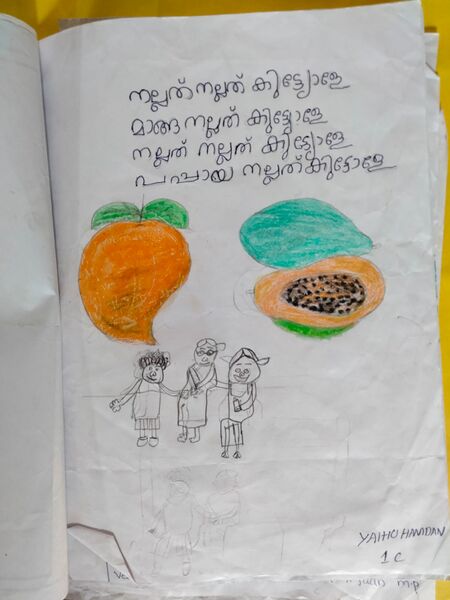 നല്ലത് നല്ലത് കുട്ട്യോളേ
മാങ്ങ നല്ലത് കുട്ട്യോളേ
നല്ലത് നല്ലത് കുട്ട്യോളേ
പപ്പായ നല്ലത് കുട്ടോളേ
YAHU HAMDAN
1 C
m.p